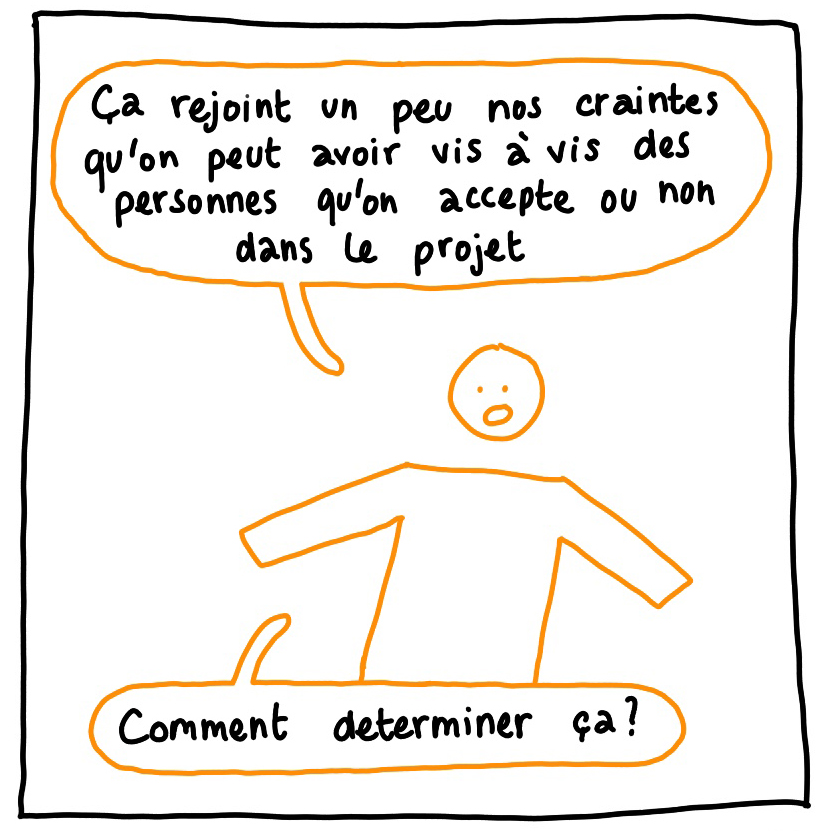 Ça rejoint un peu nos craintes
qu'on peut avoir vis à vis des
personnes qu'on accepte ou non
dans le projet
Comment determiner ça?